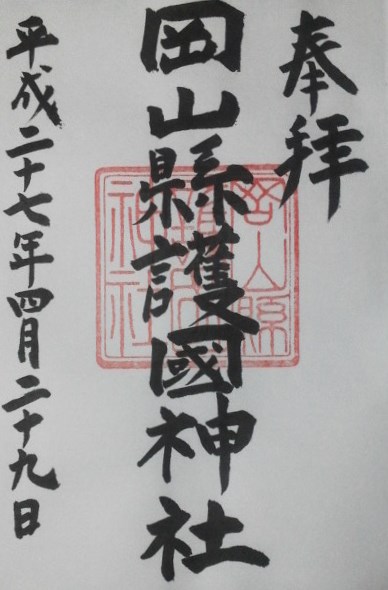 奉拝
岡山縣護國神社
平成二十七年四月二十九日